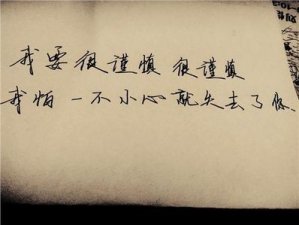 我要很谨慎 很谨慎
我怕 一不小心 就失去了你.